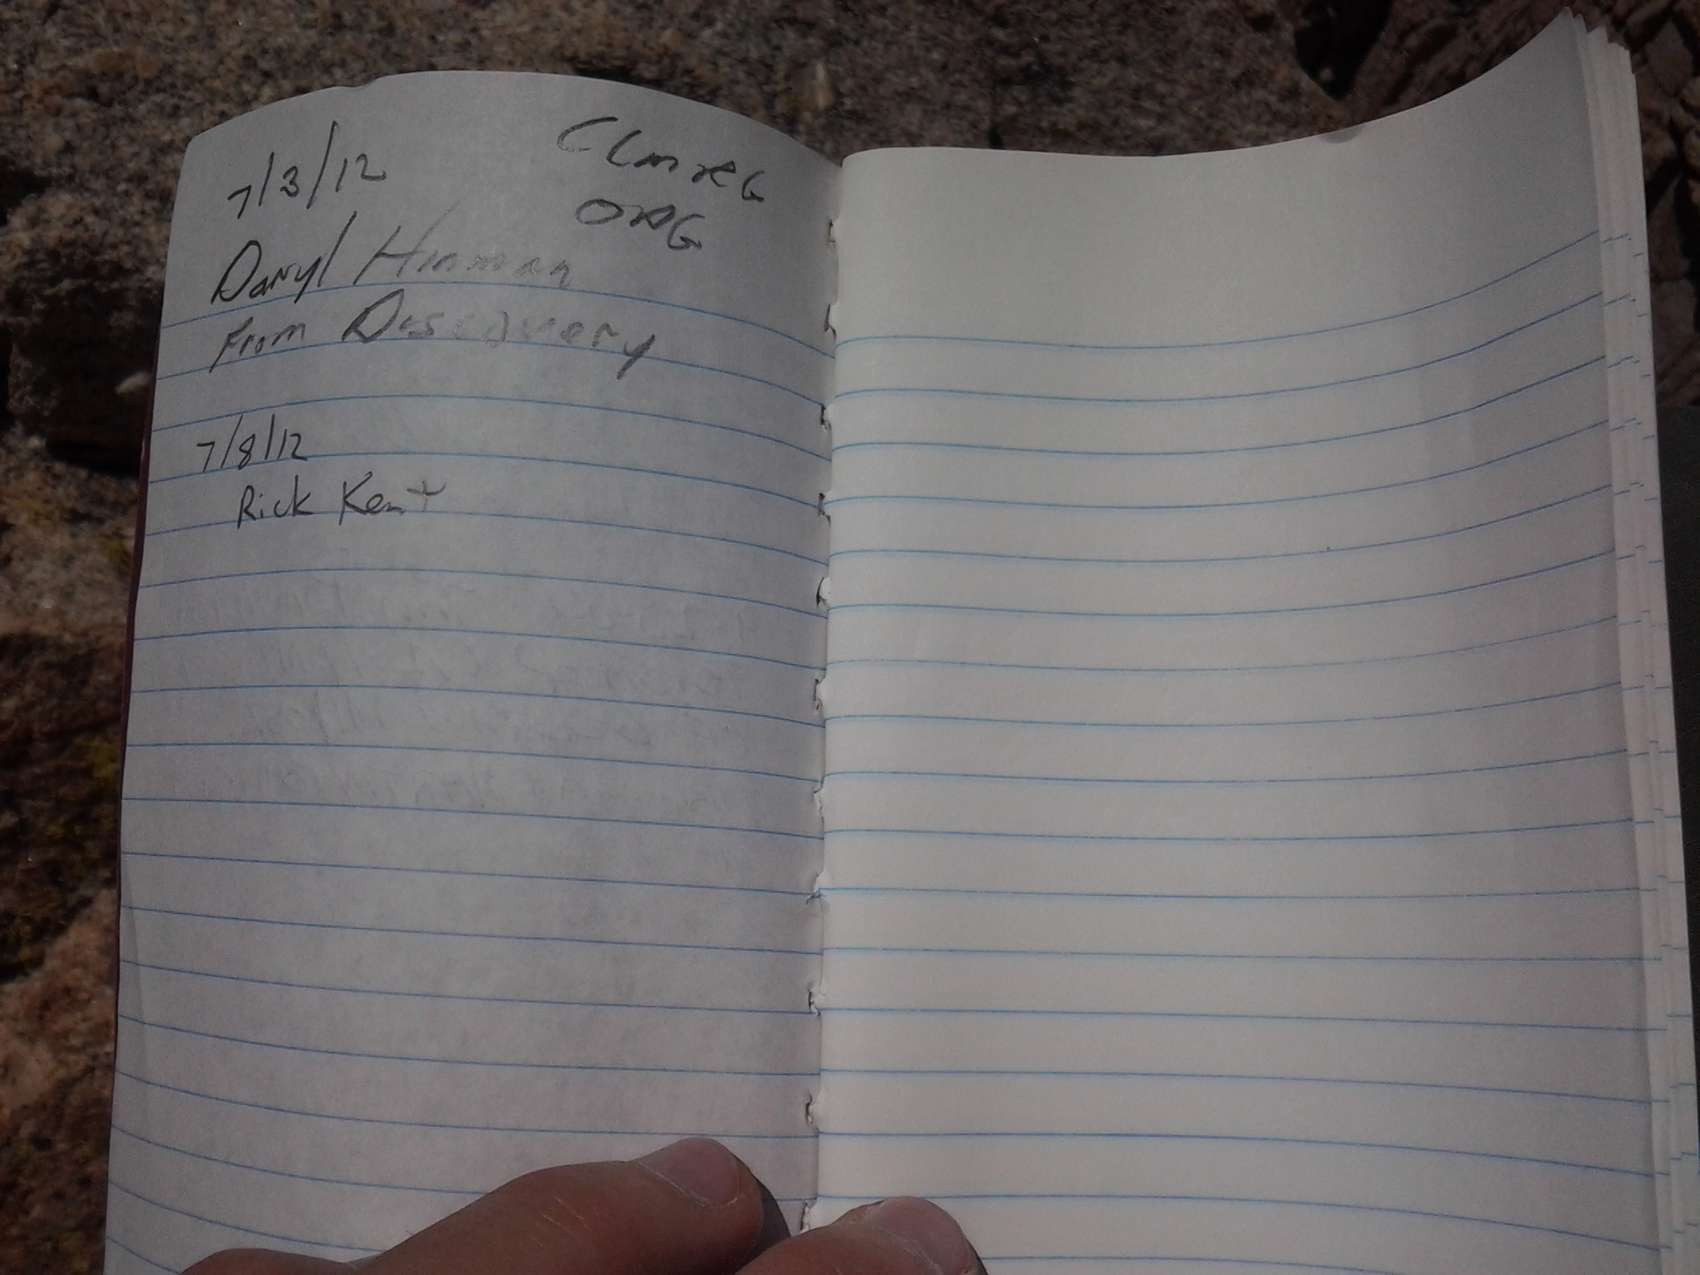 7/3/12
ORG
Daryl Hinman
From Discovery
7/8/12
Rick Kent